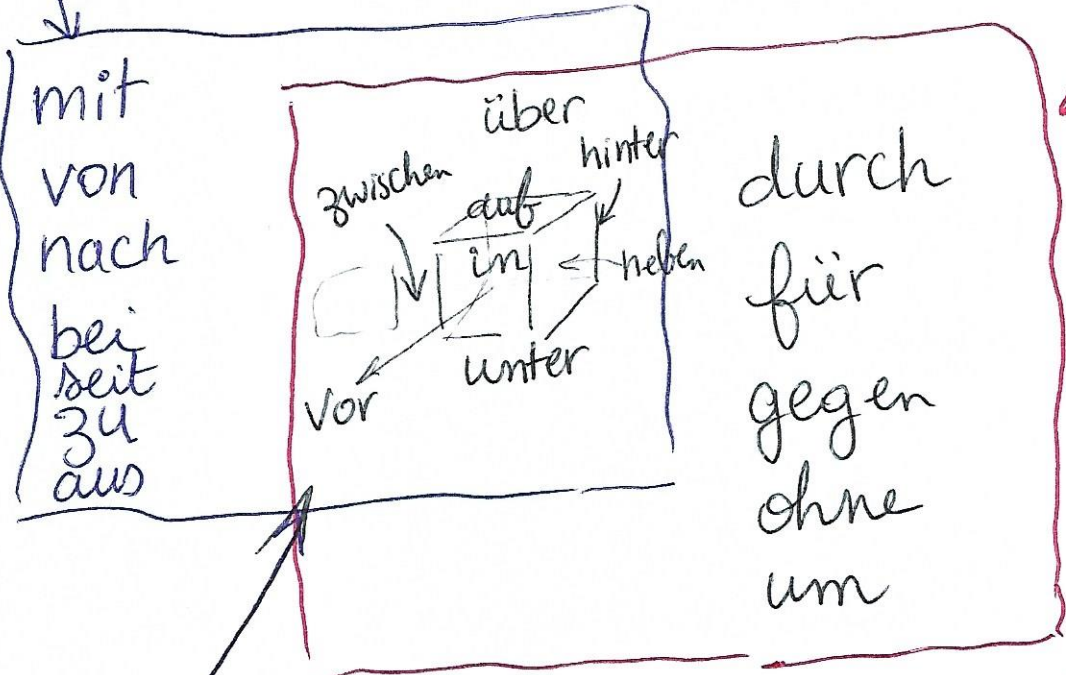 mit
von
nach
bei
seit
zu
aus
über
hinter
zwischen
auf
in
neben
unter
vor
durch
für
gegen
ohne
um